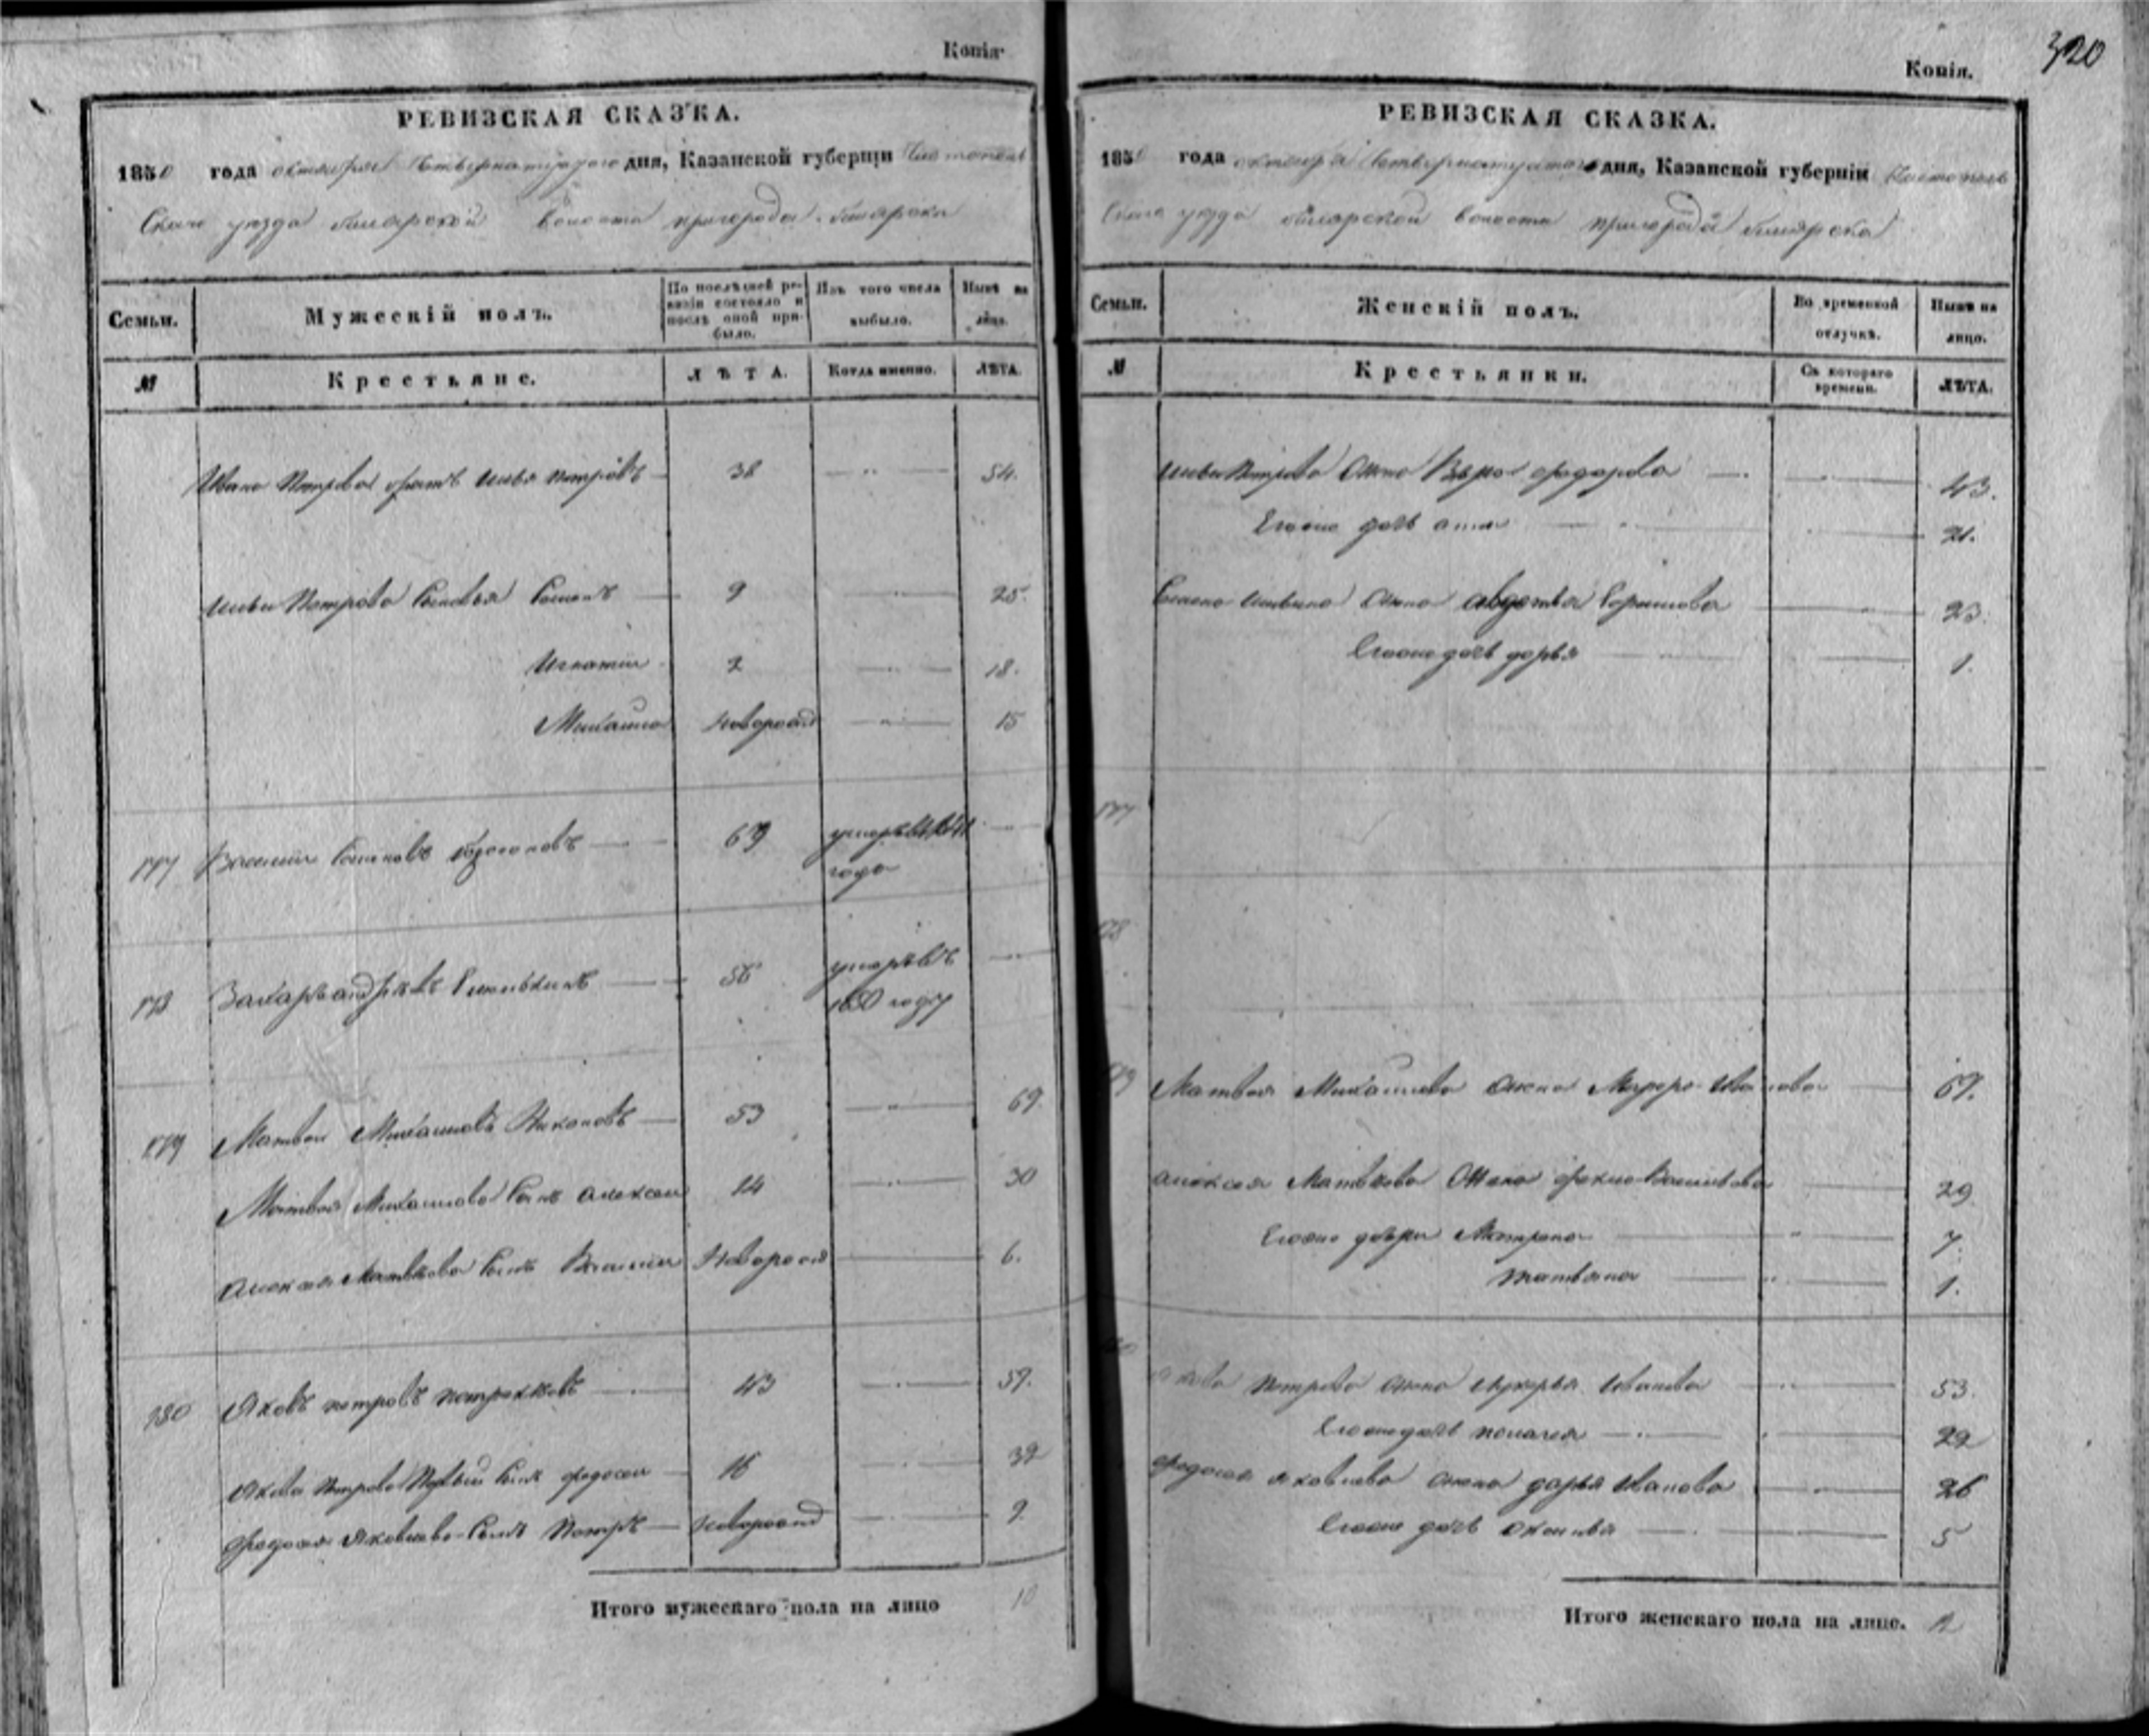 Копія
РЕВИЗСКАЯ СКАЗКА.
1850 года октября дня, Казанской губерніи Чистополь
скаго уезда билярской волости пригорода билярска
Семьи.
Мужескій полъ.
По послѣдней ре-
визіи состояло и
послѣ оной при-
было.
Изъ того числа
выбыло.
Нынѣ на
лицо.
№
Крестьяне.
ЛѢТА.
Когда именно.
ЛѢТА.
Ивана Петрова братъ Илья петровъ 38 54.
Ильи Петрова сыновья Семенъ 9 25.
Игнатии 2 18.
Михаила новорожд 15
177 Василии Семеновъ 69 умеръ
года
178 Захаръ андреевъ 56 умеръ въ
1850 году
179 Матвеи Михаиловъ Никоновъ 53 69.
Матвея Михаилова сынъ алексеи 14 30
алексея Матвеева сынъ Василии Новорожд 6.
180 Яковъ петровъ 43 59.
Якова Петрова Первыи сынъ федосеи 16 32
федосея Яковлева сынъ Петръ новорожд 9.
Итого мужескаго пола на лицо 10
320
Копія.
РЕВИЗСКАЯ СКАЗКА.
1850 года октября дня, Казанской губерніи Чистополь
скаго уезда билярской волости пригорода билярска
Семьи.
Женскій полъ.
Во временной
отлучкѣ.
Нынѣ на
лицо.
№
Крестьянки.
Съ котораго
времени.
ЛѢТА.
Ильи Петрова жена Вера федорова 43.
Его же дочь анна 21.
Семена Ильина жена авдотья 23.
Его же дочь дарья 1.
177
178
179 Матвея Михаилова жена Ивановна 67.
алексея Матвеева жена Васильева 29
Его же дочери Матрена 7.
Татьяна 1.
180 Якова Петрова жена Лукерья Иванова 53.
Его же дочь пелагея 22
федосея Яковлева жена дарья Иванова 26
Его же дочь 5
Итого женскаго пола на лицо. 12